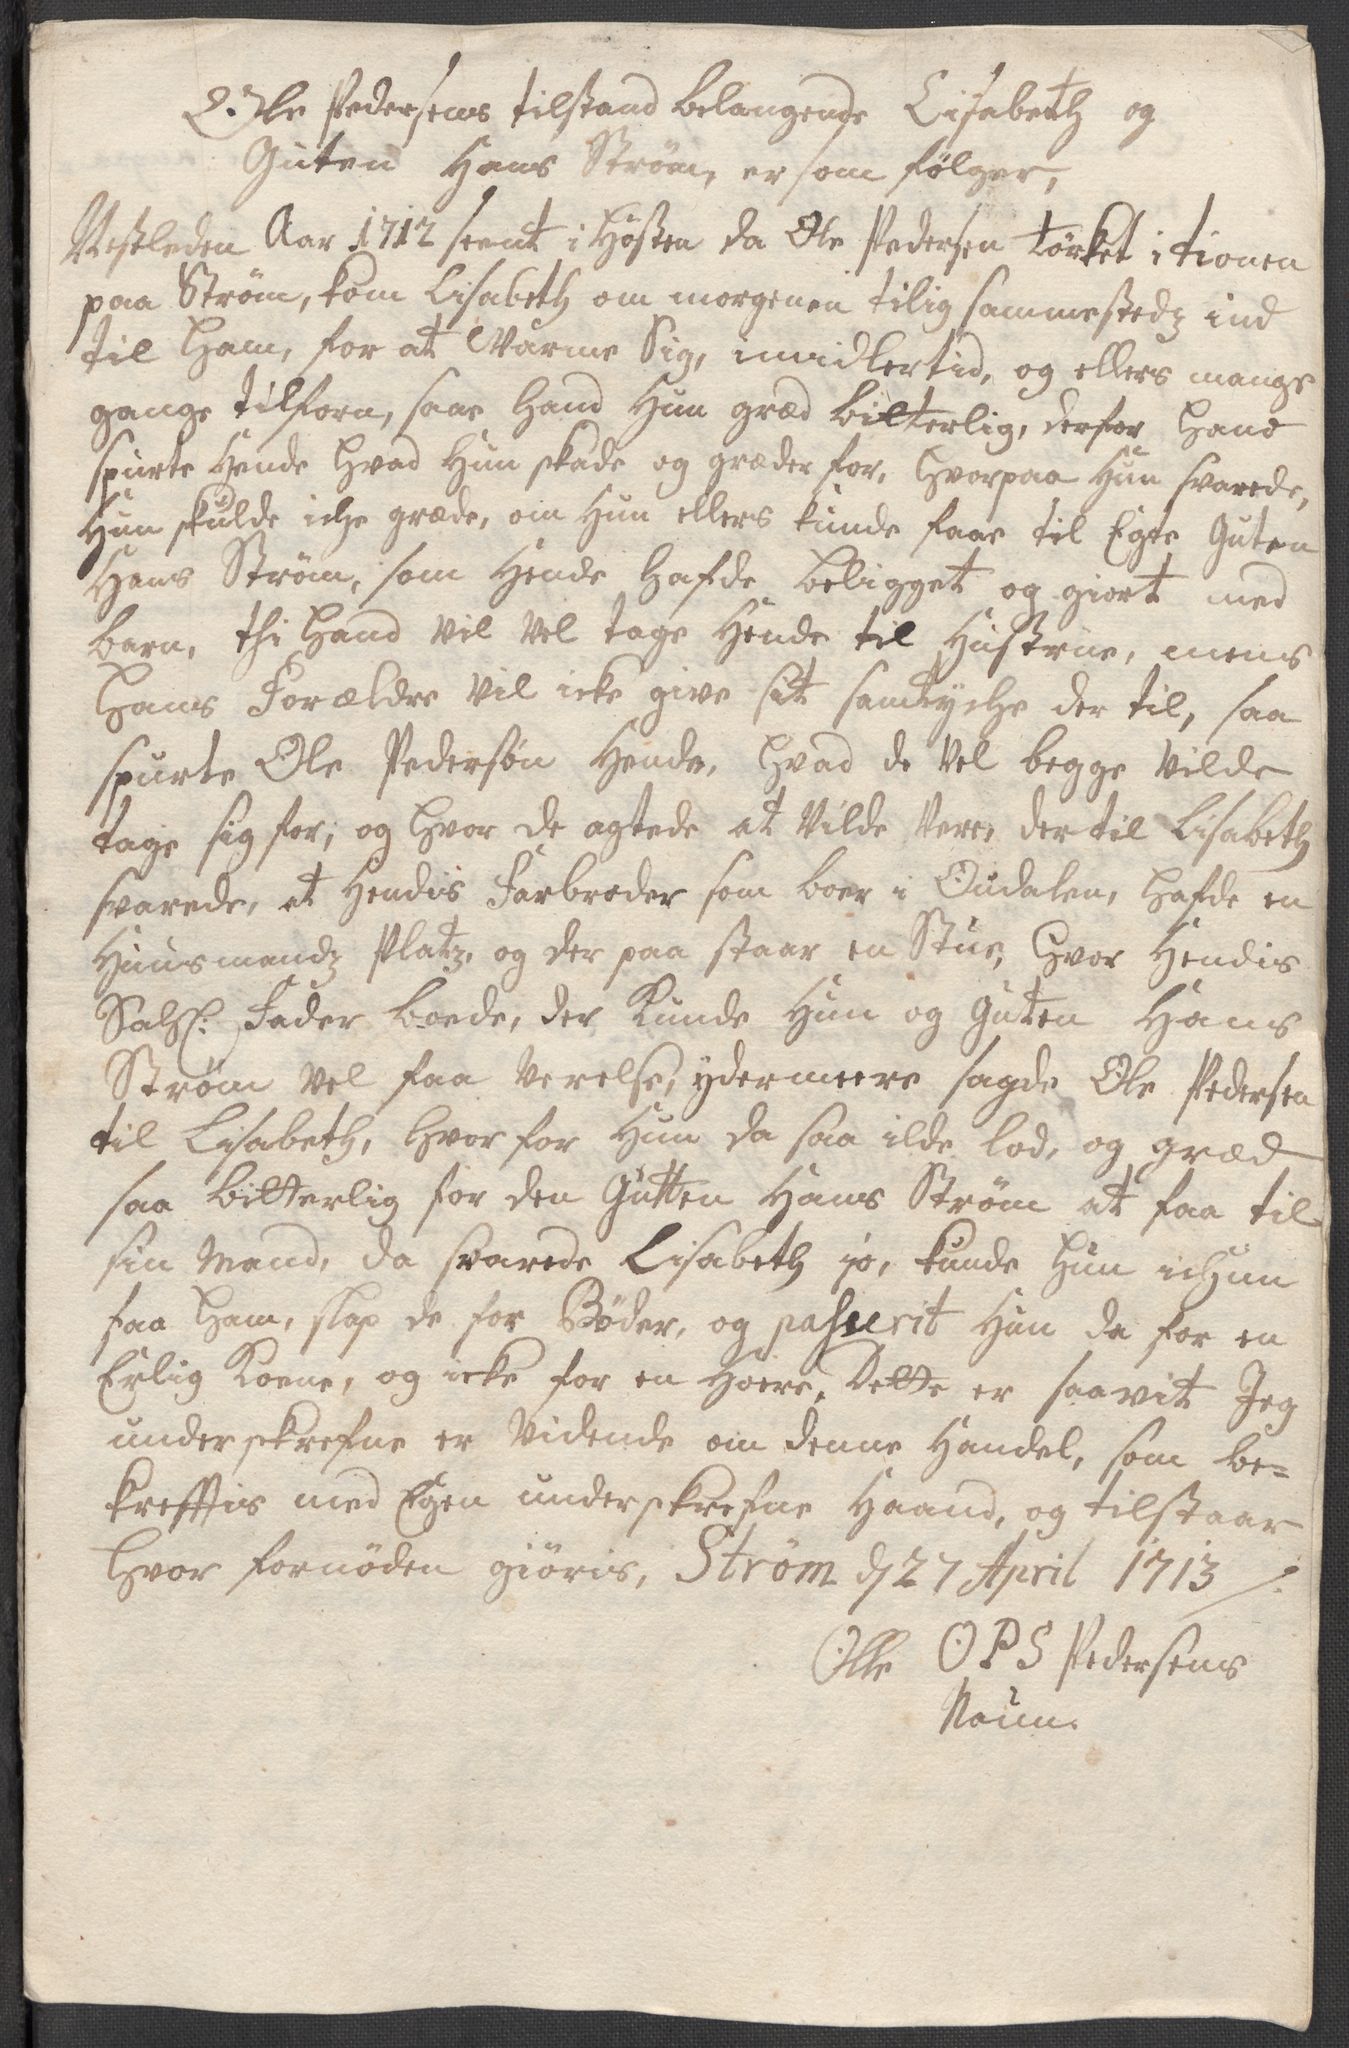 Ole Pedersens tilstand belangende Lisabeth og
Guten Hans Strøm, er som følger,
Nestleden Aar 1712 seent i Høsten da Ole Pedersen tørket i tionen
paa Strøm, kom Lisabeth om morgenen tilig sammestedz ind
til ham, for at Varme Sig, imidlertid, og ellers mange
gange tilforn, saae hand Hun græd bitterlig, derfor hand
spurte Hende hvad Hun skade og græder for, hvorpaa Hun svarede,
Hun skulde iche græde, om Hun ellers kunde faae til Egte Guten
Hans Strøm, som Hende hafde beligget og giort med
barn, thi hand vil vel tage Hende til Hustrue, mens
hans Forældre vil icke give sit samtyche der til, saa
spurte Ole Pedersøn Hende, hvad de vel begge vilde
tage sig for, og hvor de agtede at vilde vere, der til Lisabeth
svarede, at Hendis Farbroder som boer i Oudalen, hafde en
Huusmandz Platz, og der paa staar en Stue, hvor Hendis
Salig: Fader boede, der kunde Hun og Guten Hans
Strøm vel faa Verelse, ydermeere sagde Ole Pedersen
til Lisabeth, hvor for Hun da saa ilde lod, og græd
saa bitterlig for den Gutten Hans Strøm at faa til
sin Mand, da svarede Lisabeth jo, kunde hun ichun
faa ham, slap de for Bøder, og passerit Hun da for en
Erlig Koene, og icke for en Hoere, Dette er saavit Jeg
underskrefne er Vidende om denne Handel, som be=
krefftis med Egen underskrefne Haand, og tilstaar
hvor fornøden giøris, Strøm d 27 April 1713 /.
Olle OPS Pedersens
Naun.